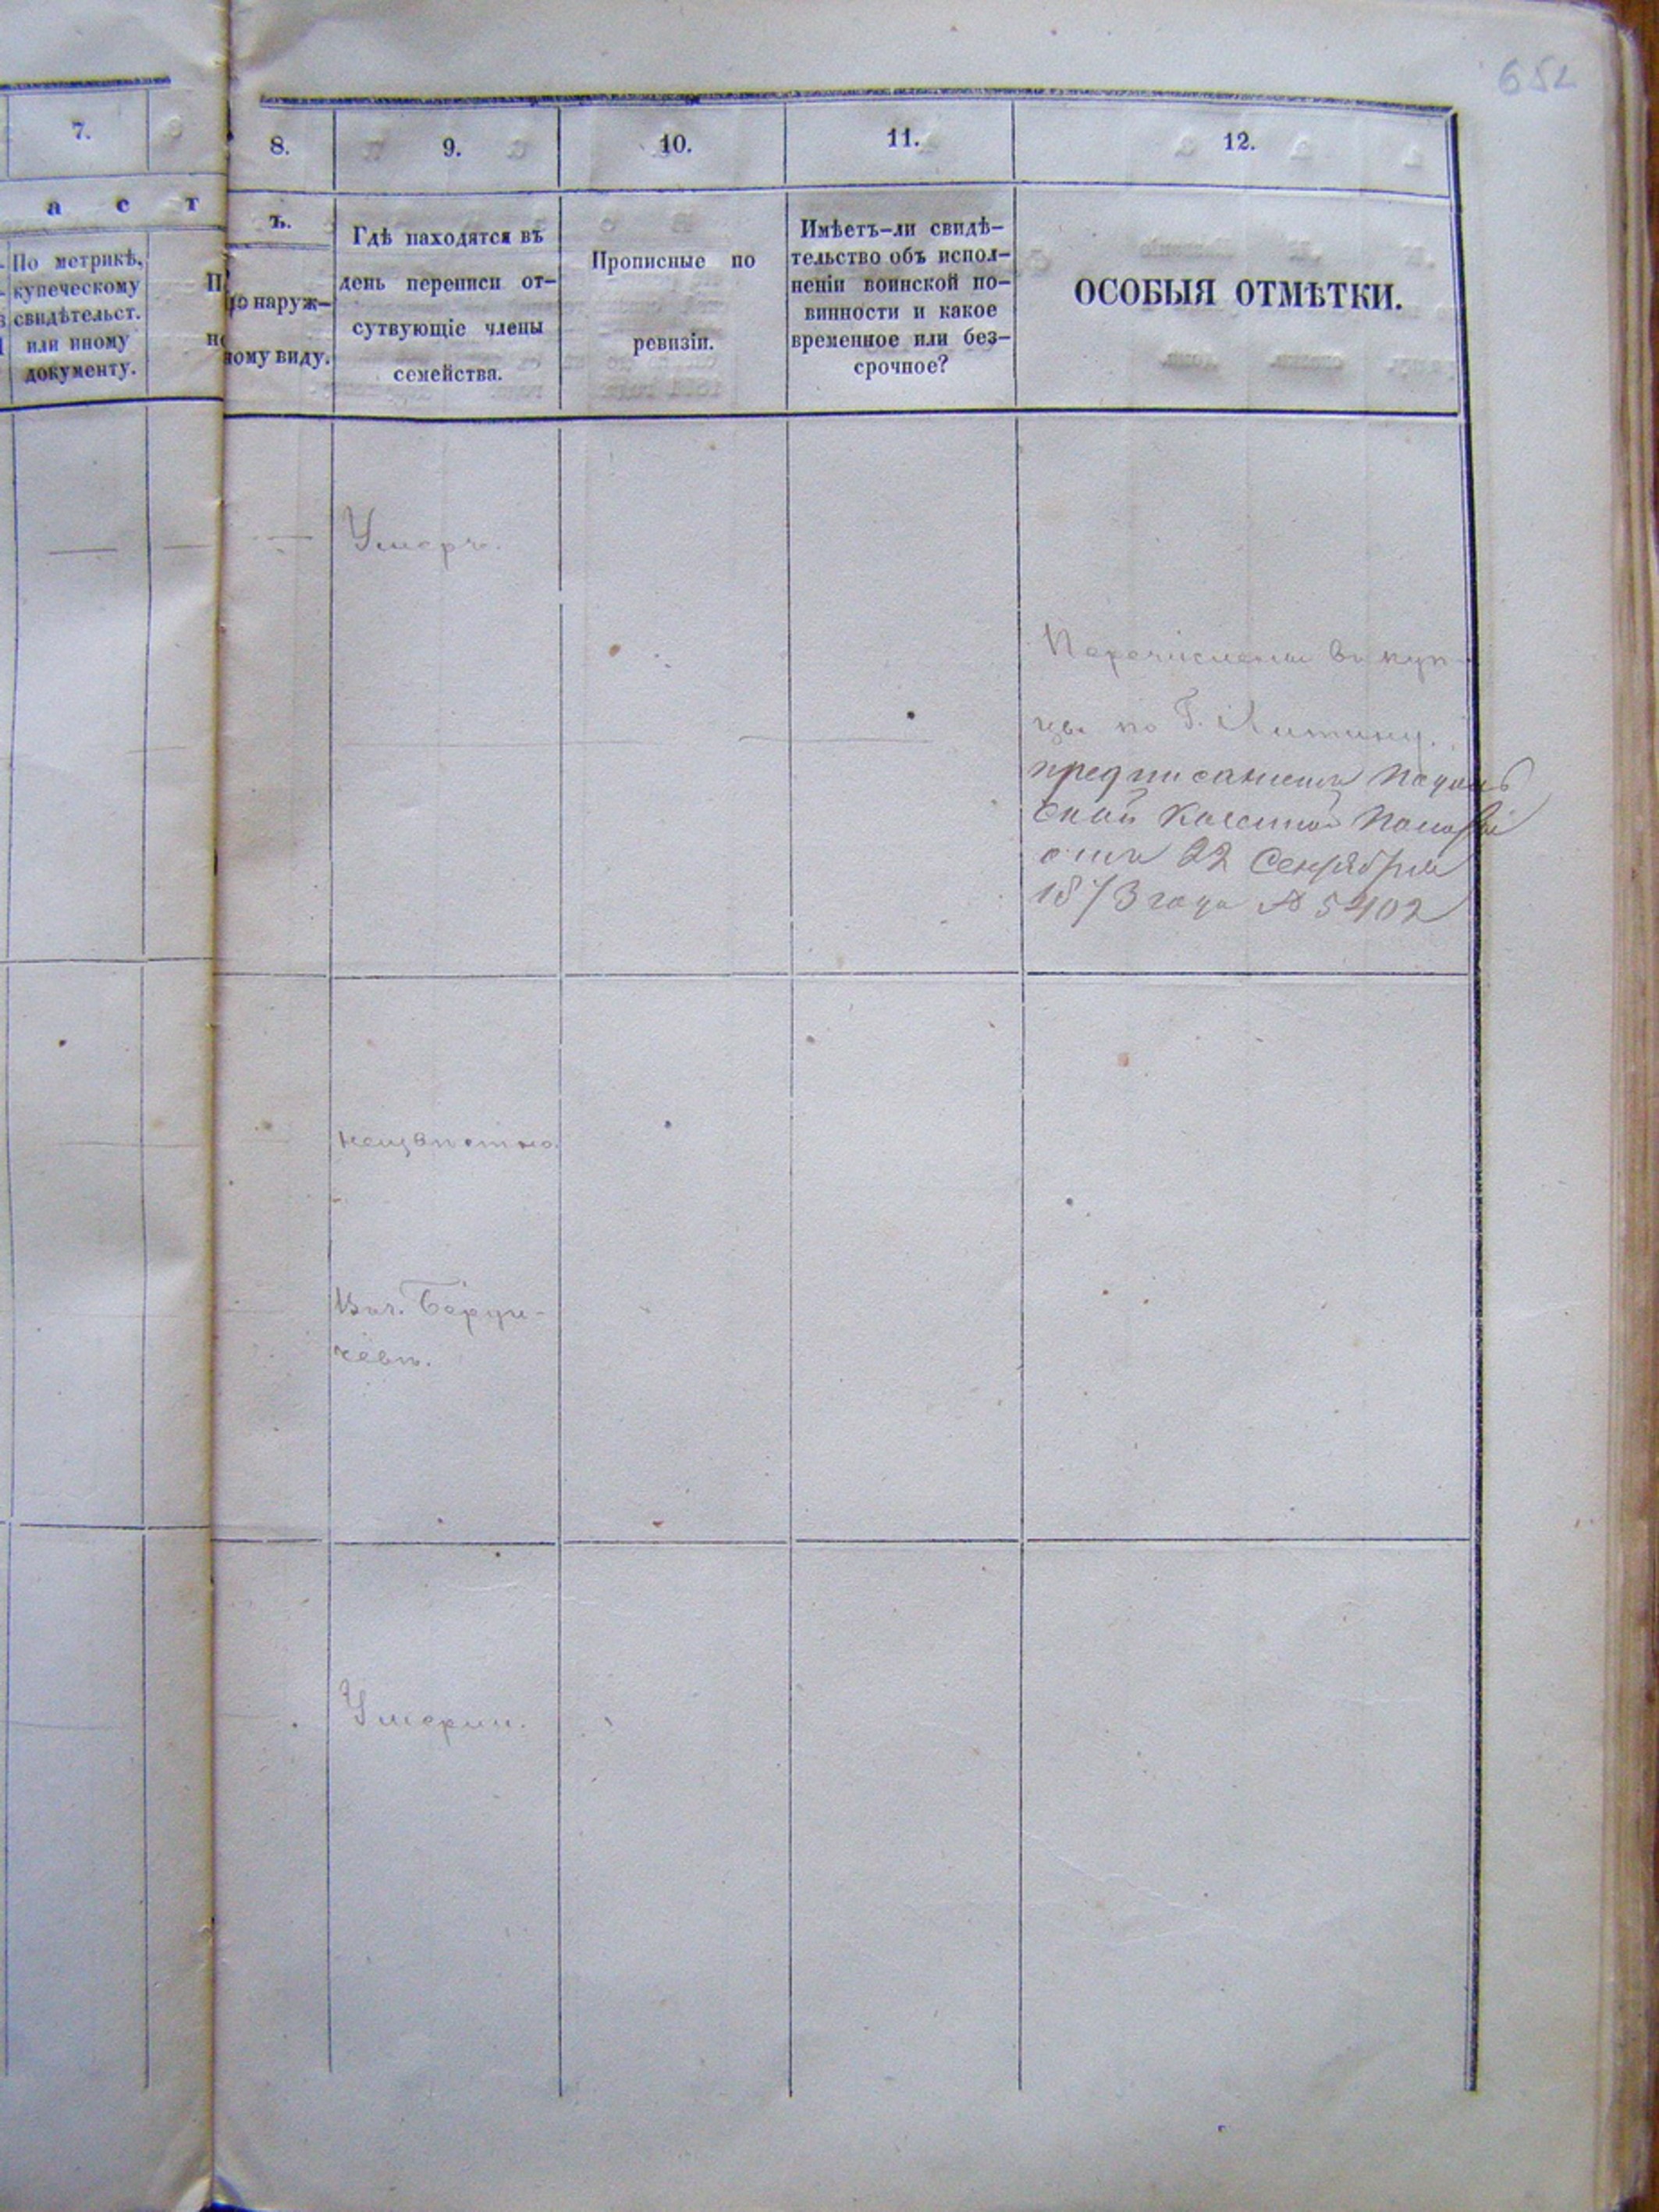 652
7.
а с т
По метрикѣ,
купеческому
свидѣтельст.
или иному
документу.
8.
ъ.
по наруж-
ному виду.
9.
Гдѣ находятся въ
день переписи от-
сутвующіе члены
семейства.
10.
Прописные по
ревизіи.
11.
Имѣетъ-ли свидѣ-
тельство объ испол-
неніи воинской по-
винности и какое
временное или без-
срочное?
12.
ОСОБЫЯ ОТМѢТКИ.
Умеръ.
Перечислены въ куп-
цы по Г. Литину.
предписаніемъ Подоль
ской Казенной Палаты
отъ 22 Сентября
1873 года № 5402
неизвѣстно.
Въ г. Берди-
чевѣ.
Умерли.